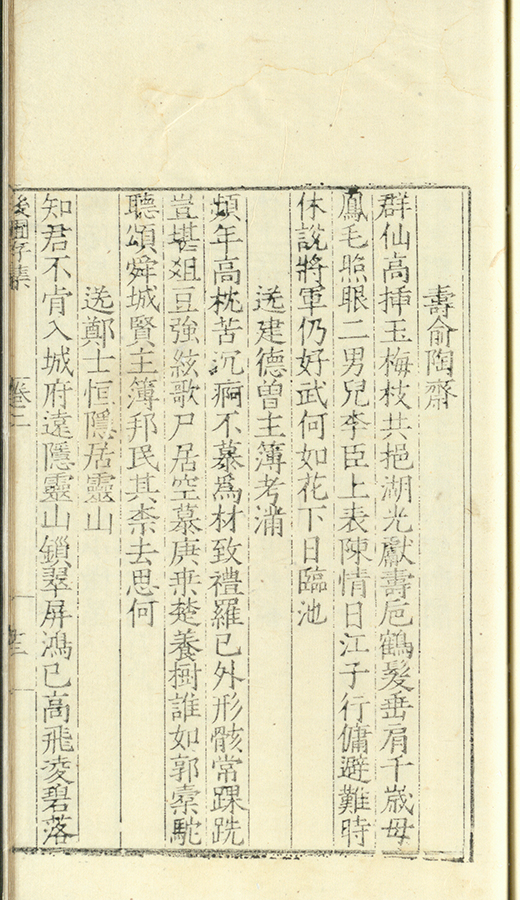 壽俞陶齋
群仙高揷玉梅枝共挹湖光獻壽卮鶴髮垂肩千歲母
鳳毛照眼二男兒李臣上表陳情日江子行傭避難時
休說將軍仍好武何如花下日臨池
送建德曾主簿考滿
頻年高枕苦沉痾不慕爲材致禮羅已外形骸常踝跣
豈堪爼豆強絃歌尸居空慕庚桒楚養樹誰如郭橐駝
聽頌舜城賢主簿邦民其柰去思何
送鄭士恒隱居靈山
知君不肯入城府遠隱靈山鎖翠屏鴻已高飛凌碧落
後圃存集
卷二
廿二